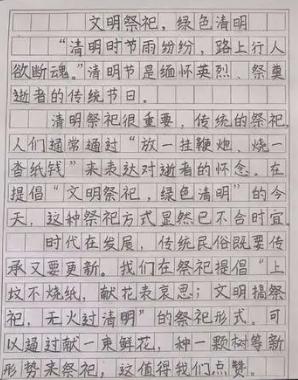 文明祭祀，绿色清明
“清明时节雨纷纷，路上行人
欲断魂。”清明节是缅怀英烈、祭奠
逝者的传统节日。
清明祭祀很重要，传统的祭祀，
人们通常通过“放一挂鞭炮、烧一
沓纸钱”来表达对逝者的怀念。在
提倡“文明祭祀，绿色清明”的今
天，这种祭祀方式显然已不合时宜。
时代在发展，传统民俗既要传
承又要更新。我们在祭祀提倡“上
坟不烧纸，献花表哀思；文明搞祭
祀，无火过清明”的祭祀形式。可
以通过献一束鲜花，种一颗树等新
形势来祭祀，这值得我们点赞。